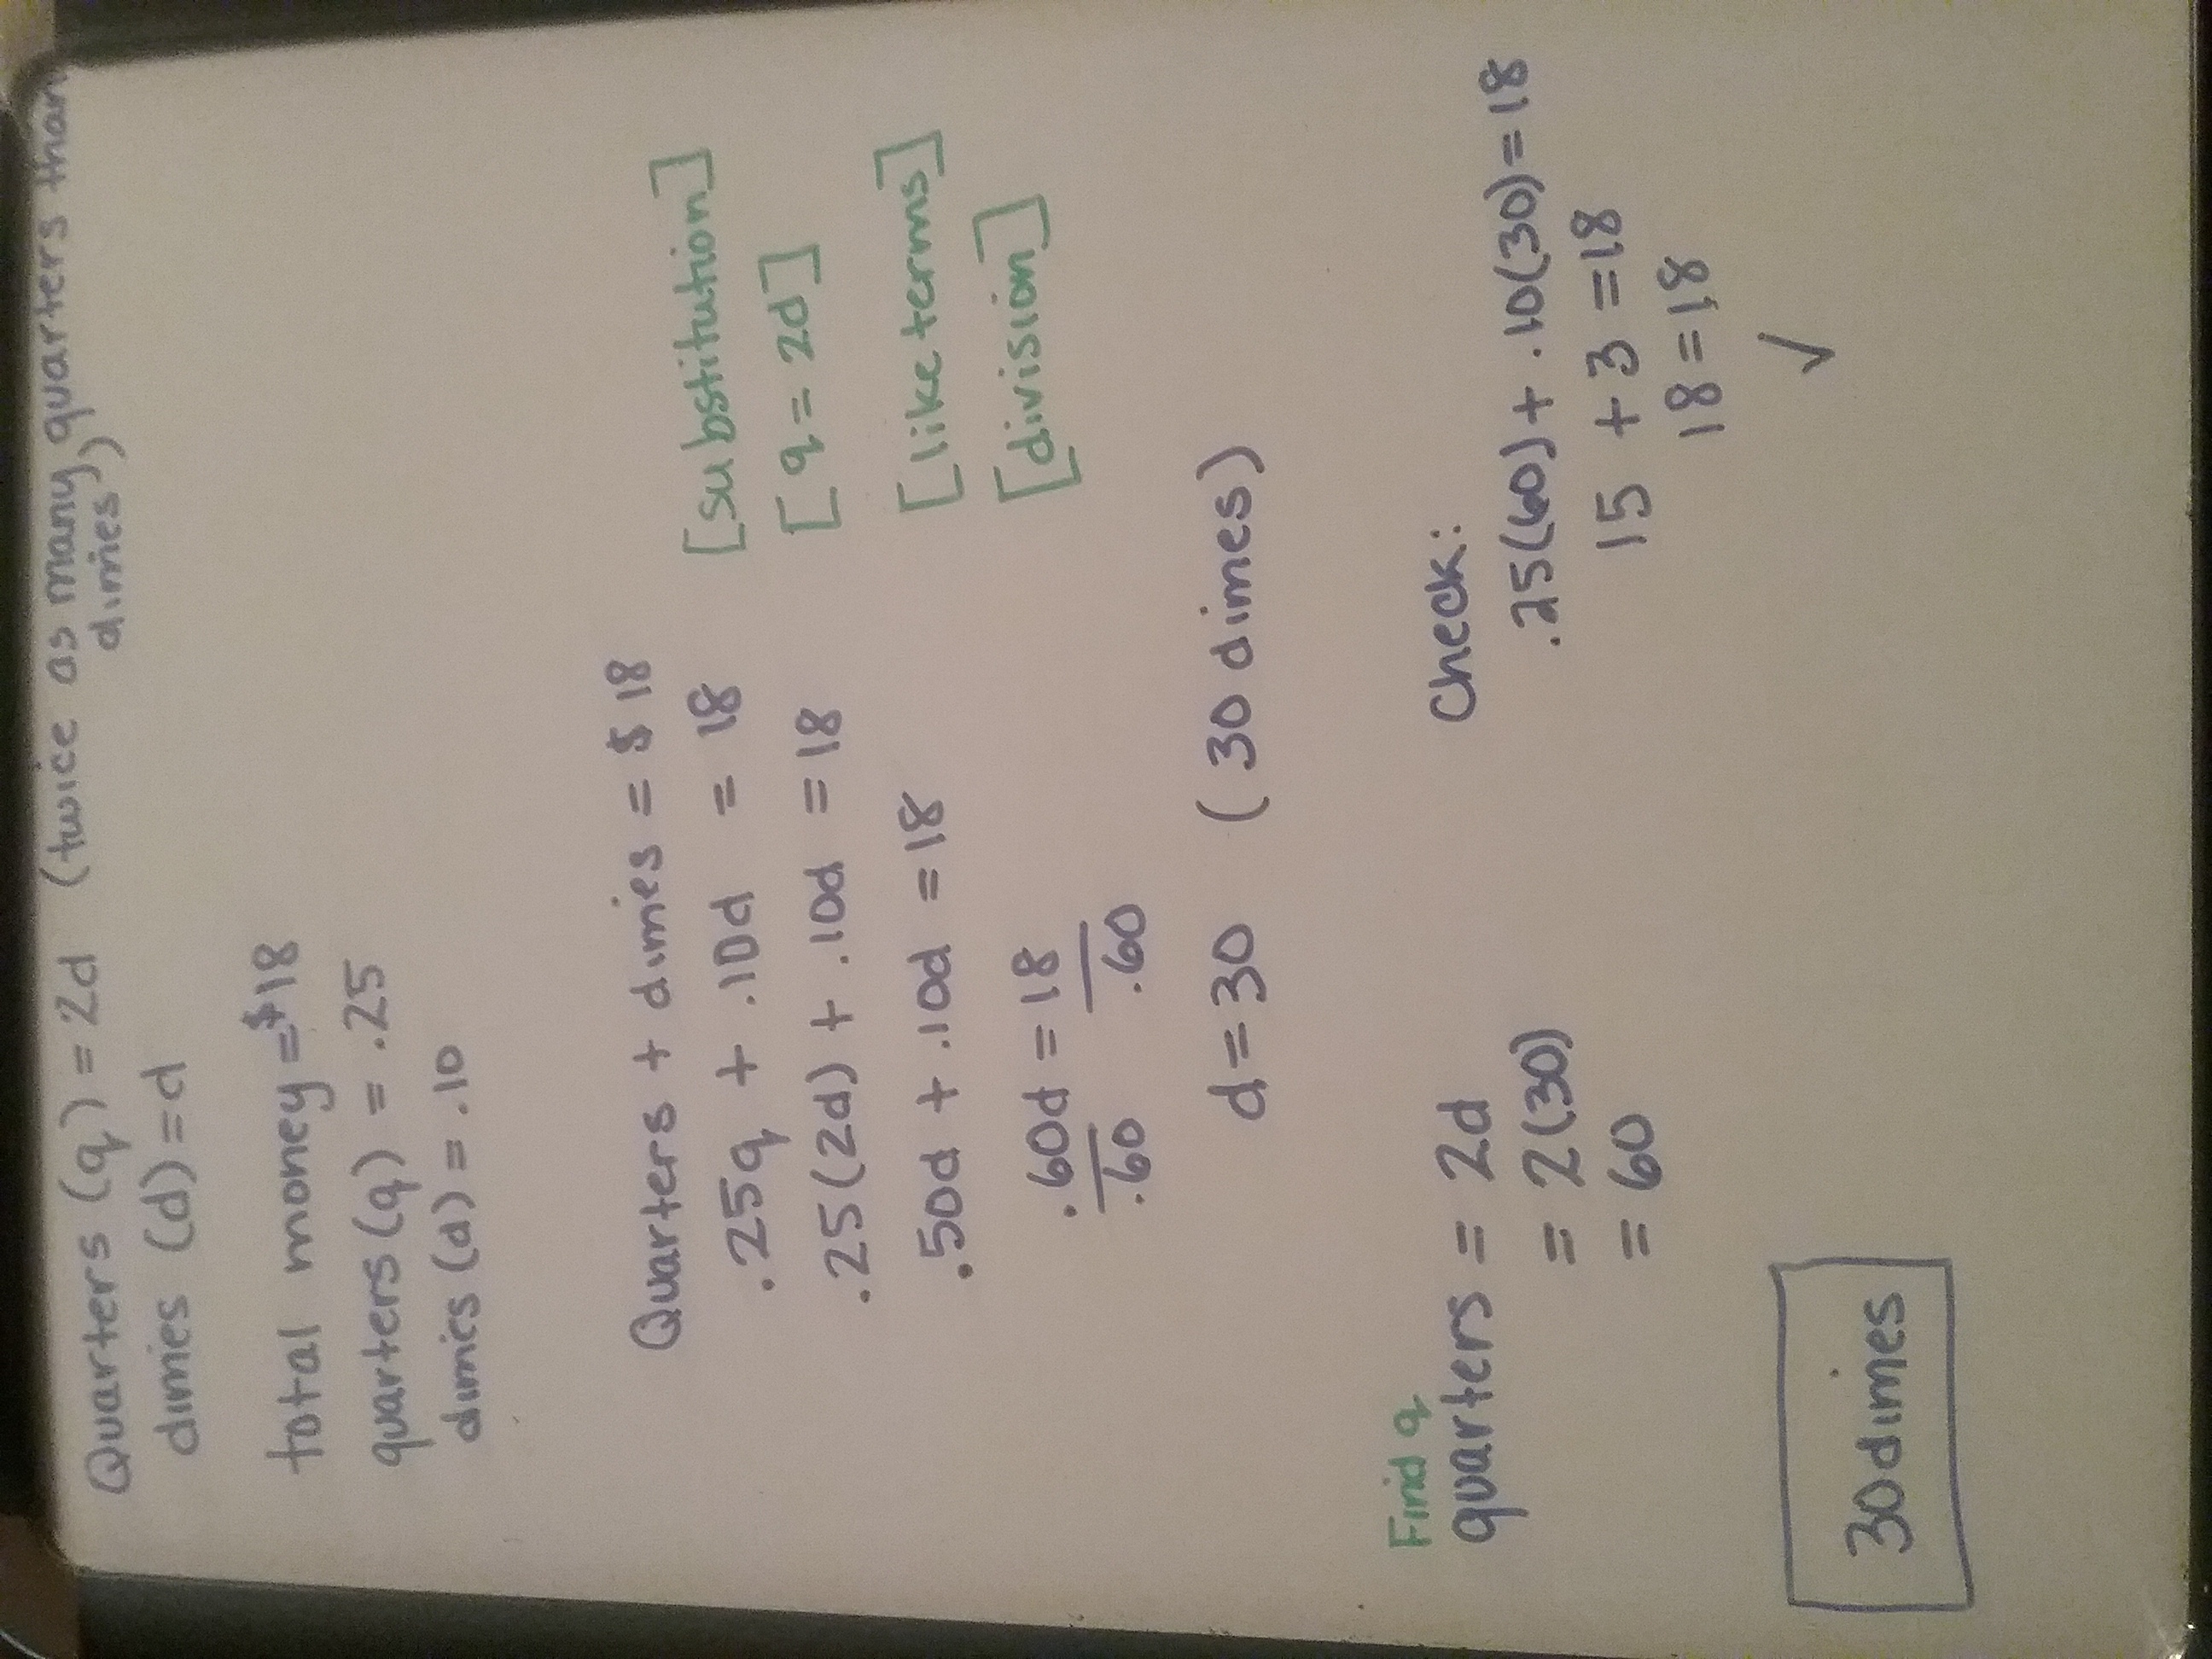 Quarters (q) = 2d (twice as many quarters than
dimes)
dimes (d) = d
total money = $18
quarters (q) = .25
dimes (d) = .10
Quarters + dimes = $18
.25q + .10d = 18 [substitution]
.25(2d) + .10d = 18 [q = 2d]
.50d + .10d = 18 [like terms]
.60d = 18 [division]
.60 .60
d = 30 (30 dimes)
Find q
quarters = 2d
= 2(30)
= 60
Check:
.25(60) + .10(30) = 18
15 + 3 = 18
18 = 18
✓
30 dimes